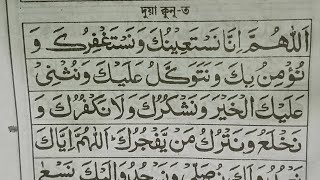 দুয়া কুনূ-ত
اَللّٰهُمَّ اِنَّا نَسْتَعِيْنُكَ وَنَسْتَغْفِرُكَ وَ
نُؤْمِنُ بِكَ وَنَتَوَكَّلُ عَلَيْكَ وَنُثْنِيْ
عَلَيْكَ الْخَيْرَ وَنَشْكُرُكَ وَلَا نَكْفُرُكَ وَ
نَخْلَعُ وَنَتْرُكُ مَنْ يَّفْجُرُكَ اَللّٰهُمَّ اِيَّاكَ
نَعْبُدُ وَلَكَ نُصَلِّيْ وَنَسْجُدُ وَاِلَيْكَ نَسْعٰى